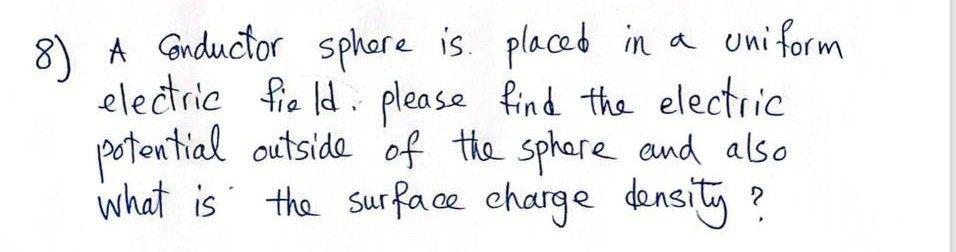 8) A Conductor sphere is placed in a uniform
electric field. please find the electric
potential outside of the sphere and also
what is the surface charge density ?